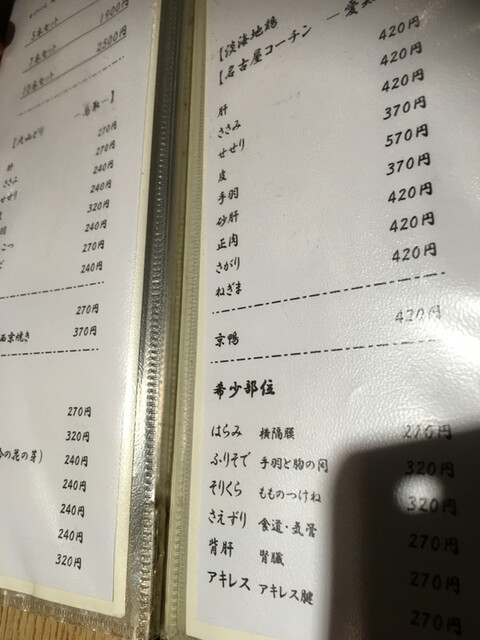 5本セット 1900円
7本セット 2500円
10本セット
【大山どり ―鳥取―】
肝 270円
ささみ 270円
せせり 240円
240円
320円
240円
こつ 270円
240円
270円
西京焼き 370円
270円
320円
の花の芽) 240円
240円
240円
320円
【淡海地鶏
【名古屋コーチン ―愛
肝 420円
ささみ 420円
せせり 420円
皮 370円
手羽 570円
砂肝 370円
正肉 420円
さがり 420円
ねぎま 420円
京鴨 420円
希少部位
はらみ 横隔膜 270円
ふりそで 手羽と胸の間 320円
そりくら もものつけね 320円
さえずり 食道・気管 270円
背肝 腎臓 270円
アキレス アキレス腱 270円